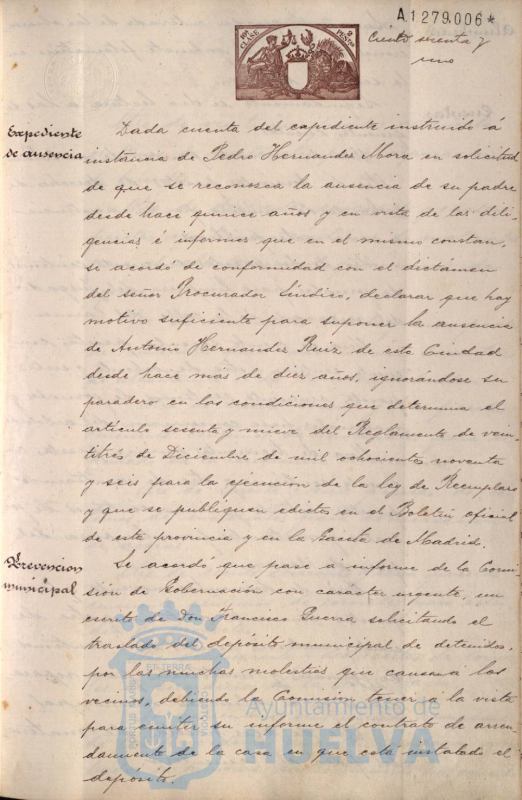 A.1279.006*
10ª CLASE
2 PESETAS
Ciento sesenta y
uno
Expediente
de ausencia
Dada cuenta del expediente instruido á
instancia de Pedro Hernandez Mora en solicitud
de que se reconozca la ausencia de su padre
desde hace quince años y en vista de las dili-
gencias é informes que en el mismo constan,
se acordó de conformidad con el dictámen
del señor Procurador Síndico, declarar que hay
motivo suficiente para suponer la ausencia
de Antonio Hernandez Ruiz de esta Ciudad
desde hace más de diez años, ignorándose su
paradero en las condiciones que determina el
artículo sesenta y nueve del Reglamento de vein-
titrés de Diciembre de mil ochocientos noventa
y seis para la ejecución de la ley de Reemplazo
y que se publiquen edictos en el Boletín oficial
de esta provincia y en la Gaceta de Madrid.
Prevencion
municipal
Se acordó que pase á informe de la Comi-
sión de Gobernación con caracter urgente, un
escrito de don Francisco Guerra solicitando el
traslado del depósito municipal de detenidos,
por las muchas molestias que causa á los
vecinos, debiendo la Comisión tener a la vista
para emitir su informe el contrato de arren-
damiento de la casa en que está instalado el
depósito.
Ayuntamiento de
HUELVA